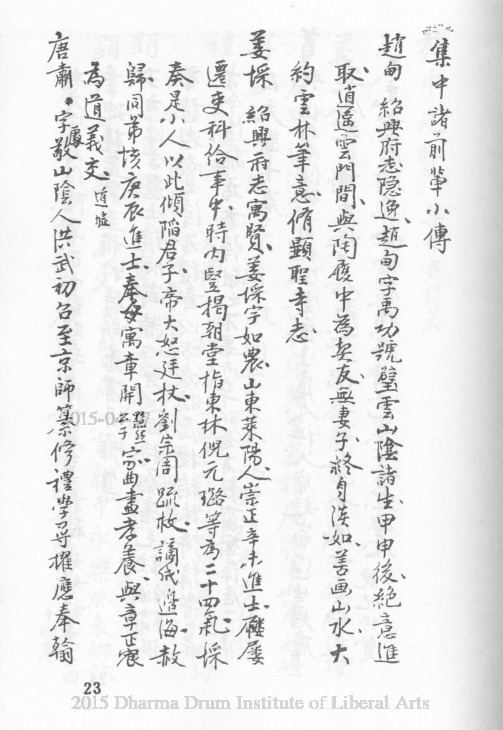 集中諸前輩小傳
趙甸 紹興府志隱逸、趙甸字禹功號璧雲山陰諸生甲申後、絕意進
取、逍遙雲門間、與陶履中為契友、無妻子、終身淡如、善画山水、大
約雲林筆意、脩顯聖寺志
姜埰 紹興府志寓賢、姜埰字如農、山東萊陽人、崇正辛未進士、屢
遷吏科給事中、時內豎揭朝堂指東林倪元璐等為二十四氣、埰
奏是小人以此傾陷君子、帝大怒廷杖、劉宗周疏救、謫戍邊海、赦
歸、同弟垓庚辰進士、奉母寓章閈 家曲盡孝養、與章正宸
為道義交 道墟
唐肅 字處敬山陰人洪武初召至京師纂修禮學尋擢應奉翰
23
2015-04-27
2015 Dharma Drum Institute of Liberal Arts